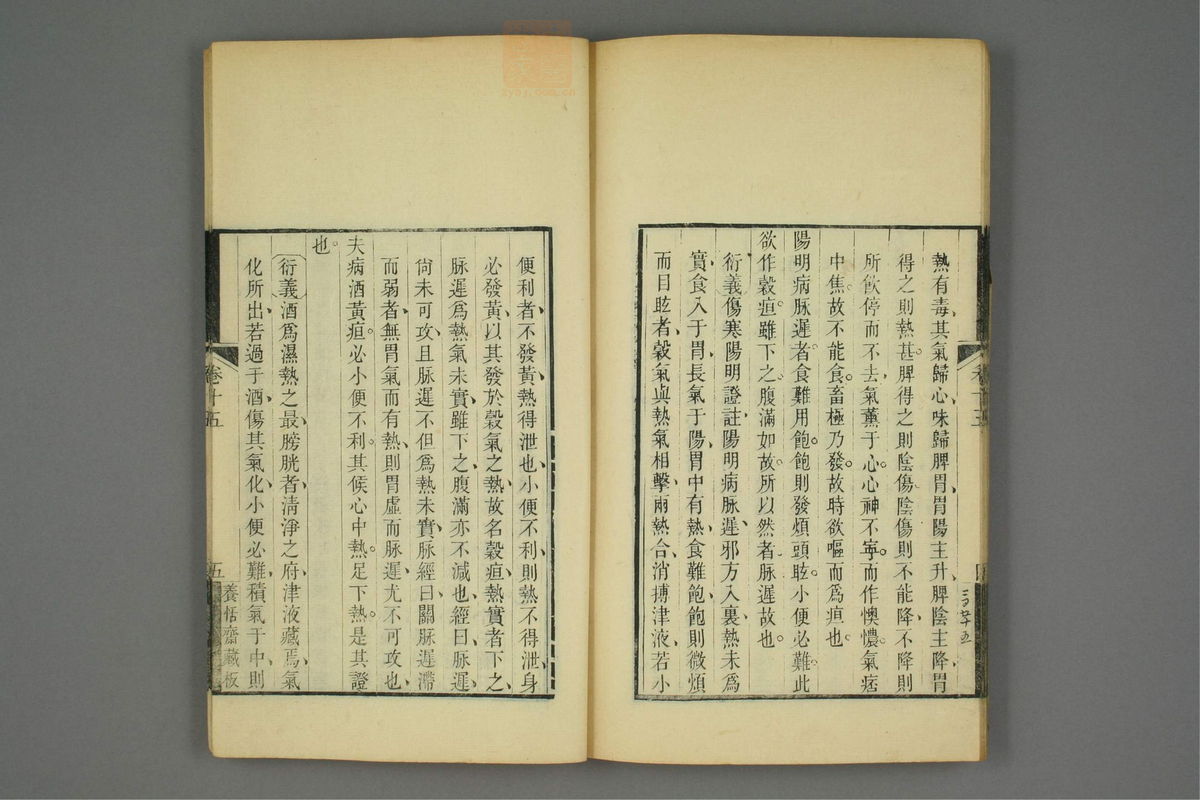 熱有毒其氣歸心味歸脾胃胃陽主升脾陰主降胃
得之則熱甚脾得之則陰傷陰傷則不能降不降則
所飲停而不去氣薰于心心神不寧而作懊憹氣痞
中焦故不能食畜極乃發故時欲嘔而爲疸也
陽明病脉遲者食難用飽飽則發煩頭眩小便必難此
欲作穀疸雖下之腹滿如故所以然者脉遲故也
衍義傷寒陽明證註陽明病脉遲邪方入裏熱未爲
實食入于胃長氣于陽胃中有熱食難飽飽則微煩
而目眩者穀氣與熱氣相擊兩熱合消搏津液若小
卷十五
便利者不發黃熱得泄也小便不利則熱不得泄身
必發黃以其發於穀氣之熱故名穀疸熱實者下之
脉遲爲熱氣未實雖下之腹滿亦不減也經曰脉遲
尚未可攻且脉遲不但爲熱未實脉經曰關脉遲滯
而弱者無胃氣而有熱則胃虛而脉遲尤不可攻也
夫病酒黃疸必小便不利其候心中熱足下熱是其證
也
衍義酒爲濕熱之最膀胱者清淨之府津液藏焉氣
化所出若過于酒傷其氣化小便必難積氣于中則
卷十五
五
養恬齋藏板